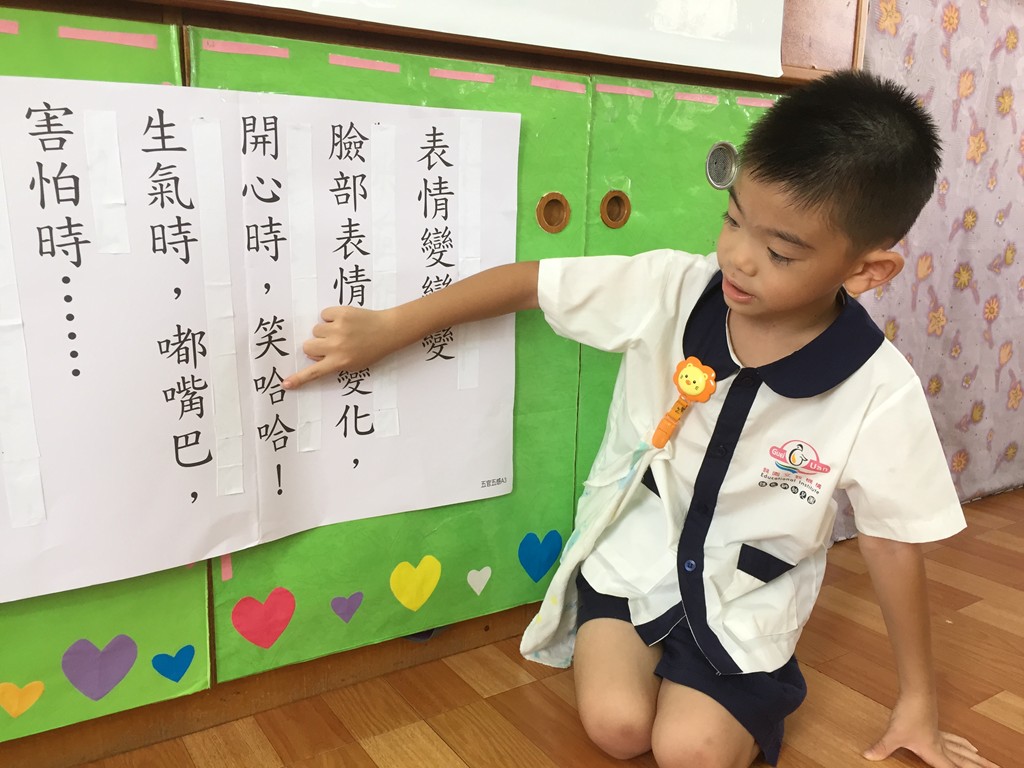 表情變變變
臉部表情變化，
開心時，笑哈哈！
生氣時，嘟嘴巴，
害怕時……
五官五感A3
Educational Institute